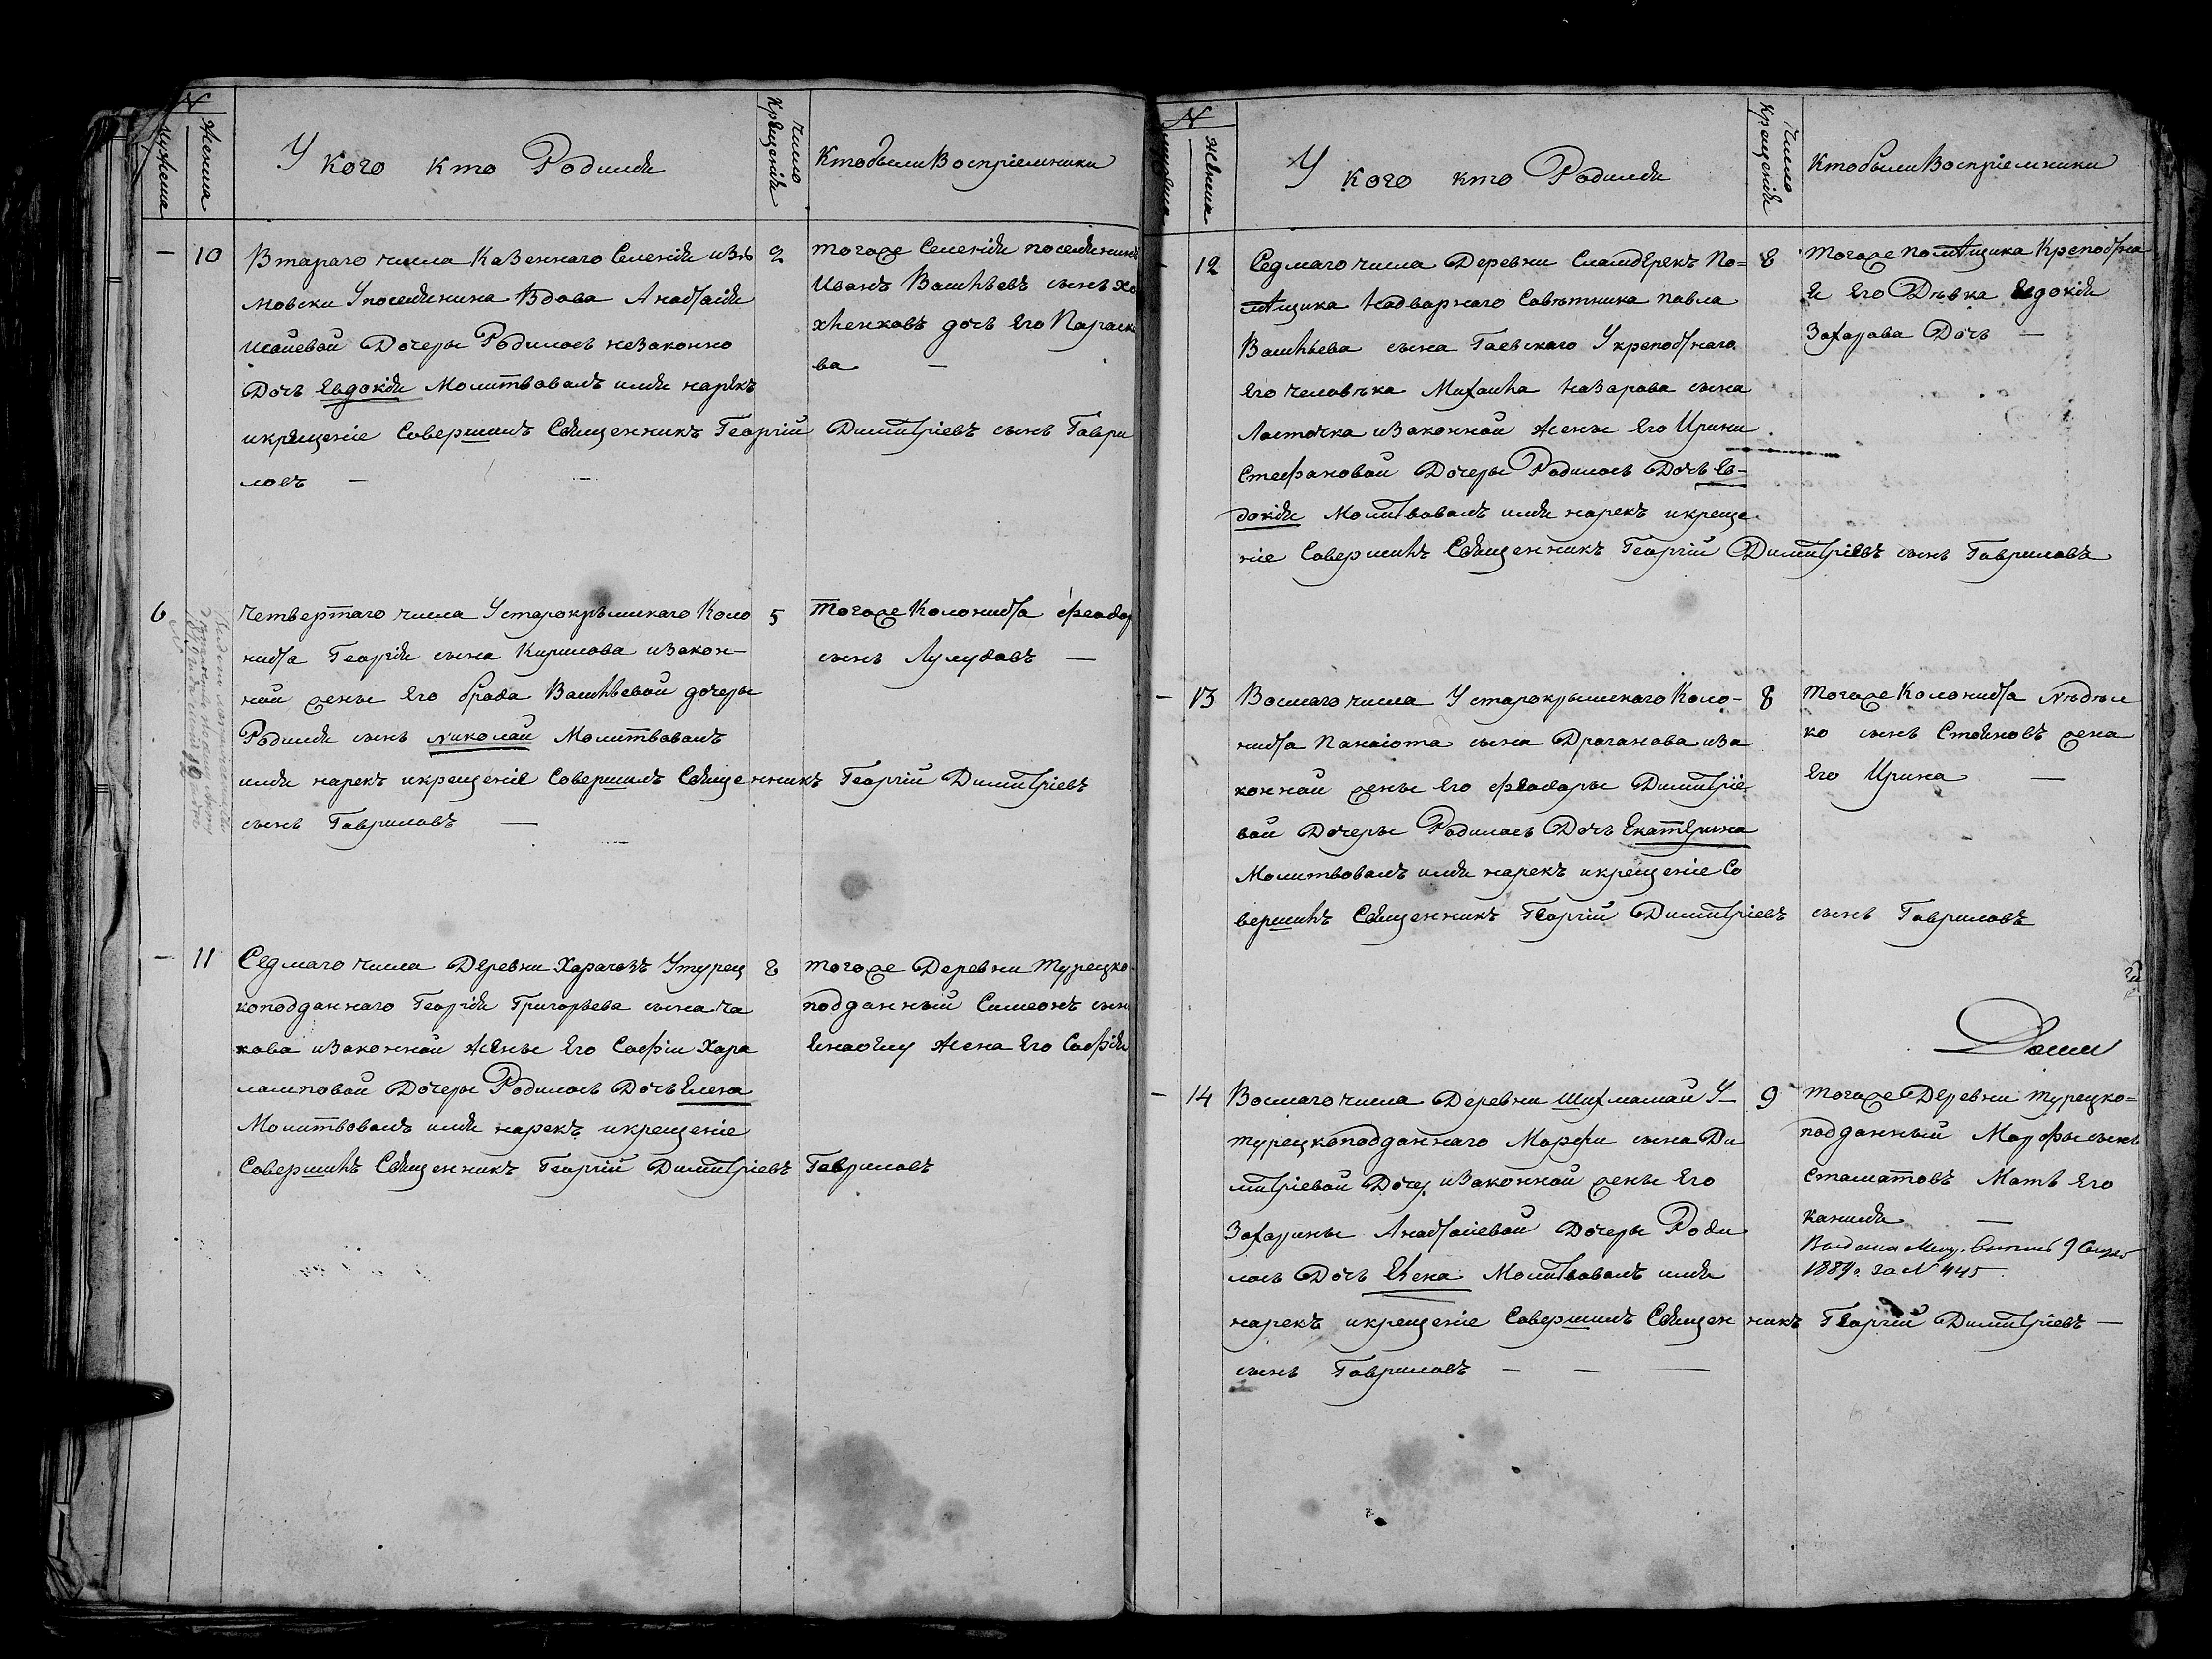 N
Мужеска
Женска
У кого кто Родился
Число Крещенія
Кто были Воспріемники
— 10 Втараго числа Казеннаго Селенія изъ
мовски У поселянина Вдова Анастасія
Исаиевой Дочеры Родилась незаконно
Дочь Евдокія Молитвовалъ имя нарекъ
икрещеніе Совершилъ Священникъ Георгій Димитріевъ сынъ Гаври
ловъ —
2
тогоже Селенія поселянинъ
Иванъ Васильевъ сынъ Хо
хленковъ дочь Его Параске
ва —
6 Четвертаго числа У старокрымскаго Коло
ниста Георгія сына Кирилова изакон-
ной жены Его Града Васильевой дочеры
Родился сынъ Николай Молитвовалъ
имя нарекъ икрещеніе Совершилъ Священникъ Георгій Димитріевъ
сынъ Гавриловъ —
5
Тогоже Колониста феодор
сынъ Лулудовъ —
— 11 Седмаго числа Деревни Харагозъ У турец
коподданнаго Георгія Григорьева сына Ча
кова изаконной Жены Его Софіи Хара
ламповой Дочеры Родилась Дочь Елена
Молитвовалъ имя нарекъ икрещеніе
Совершилъ Священникъ Георгій Димитріевъ Гавриловъ
8
тогоже Деревни Турецко-
подданный Симеонъ сын
Жена Его Софія
N
Женска
У кого кто Родился
Число Крещенія
Кто были Воспріемники
12 Седмаго числа Деревни По=
мѣщика Надворнаго Совѣтника павла
Васильева сына Гаевскаго У крепостнаго
Его человѣка Михаила Назарова сына
Ласточка изаконной Жены Его Ирини
Стефановой Дочеры Родилась Дочь Ев-
докія Молитвовалъ имя нарекъ икреще-
ніе Совершилъ Священникъ Георгій Димитріевъ сынъ Гавриловъ
8
Тогоже помѣщика Крепостна
я Его Дѣвка Евдокія
Захарова Дочь —
— 13 Восмаго числа У старокрымскаго Коло-
ниста Панаіота сына Драганова иза
конной жены Его феодоры Димитріе-
вой Дочеры Родилась Дочь Екатерина
Молитвовалъ имя нарекъ икрещеніе Со
вершилъ Священникъ Георгій Димитріевъ сынъ Гавриловъ
8
Тогоже Колониста Нѣдѣл
ко сынъ Стояновъ жена
Его Ирина —
— 14 Восмаго числа Деревни Шихмамай У
турецкоподданнаго Морфи сына Ди
митріевой Дочер изаконной жены Его
Захарины Анастасіевой Дочеры Роди
лась Дочь Елена Молитвовалъ имя
нарекъ икрещеніе Совершилъ Священникъ Георгій Димитріевъ —
сынъ Гавриловъ — — —
9
Тогоже Деревни Турецко=
подданный Морфы сынъ
Стаматовъ Мать Его
Канися —
Выдана
1889 г. за N 445